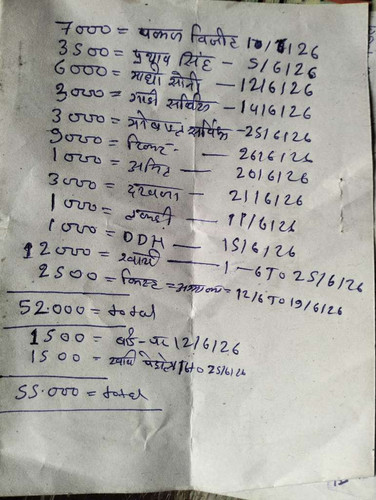 7000 = पंकज विजीट 10/6/26
3500 = प्रथाप सिंह - 5/6/26
6000 = माधो सोनी - 12/6/26
3000 = गाडी सर्विस - 14/6/26
3000 = सर्विस - 25/6/26
9000 = — 26/6/26
1000 = अमित — 20/6/26
3000 = दरवाजा — 21/6/26
1000 = लकडी — 11/6/26
1000 = DDH — 15/6/26
12000 = खर्चा — 1-6 TO 25/6/26
2500 = = 12/6 TO 19/6/26
52000 = total
1500 = 12/6/26
1500 = खर्चा पेट्रोल 1/6 to 25/6/26
55.000 = total